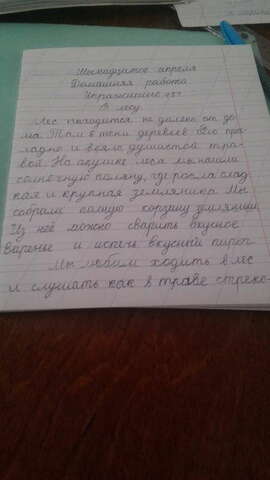 апреля
Домашняя работа
Упражнение
В лесу.
Лес находится не далеко от до-
ма. Там в тени деревьев было про-
ладно и веяло душистой тра-
вой. На опушке леса мы нашли
солнечную поляну, где росла слад-
кая и крупная земляника. Мы
собрали полную корзину земляники.
Из неё можно сварить вкусное
варенье и испечь вкусный пирог.
Мы любим ходить в лес
и слушать как в траве стреко-